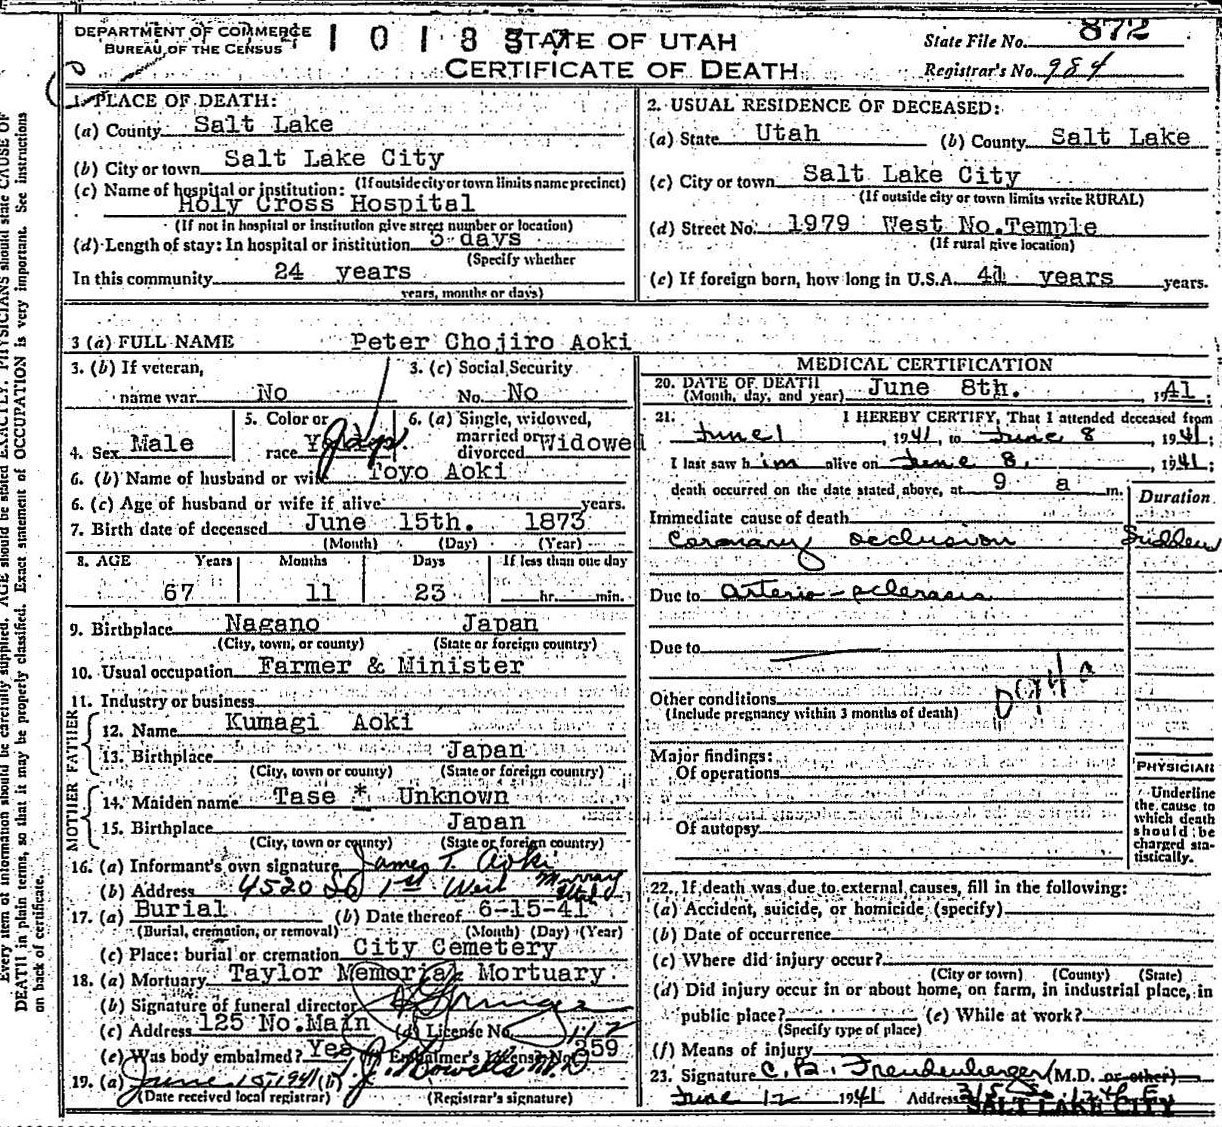 DEPARTMENT OF COMMERCE
BUREAU OF THE CENSUS
1 0 1 8 5 7
STATE OF UTAH
CERTIFICATE OF DEATH
State File No. 872
Registrar's No. 984
1. PLACE OF DEATH:
(a) County Salt Lake
(b) City or town Salt Lake City
(If outside city or town limits name precinct)
(c) Name of hospital or institution:
Holy Cross Hospital
(If not in hospital or institution give street number or location)
(d) Length of stay: In hospital or institution 3 days
(Specify whether
In this community 24 years
years, months or days)
2. USUAL RESIDENCE OF DECEASED:
(a) State Utah (b) County Salt Lake
(c) City or town Salt Lake City
(If outside city or town limits write RURAL)
(d) Street No. 1979 West No. Temple
(If rural give location)
(e) If foreign born, how long in U.S.A. 41 years years.
3 (a) FULL NAME Peter Chojiro Aoki
3. (b) If veteran, name war No
3. (c) Social Security No. No
4. Sex Male
5. Color or race
6. (a) Single, widowed, married or divorced Widowed
6. (b) Name of husband or wife Toyo Aoki
6. (c) Age of husband or wife if alive years.
7. Birth date of deceased June 15th. 1873
(Month) (Day) (Year)
8. AGE Years Months Days If less than one day
67 11 23 hr. min.
9. Birthplace Nagano Japan
(City, town, or county) (State or foreign country)
10. Usual occupation Farmer & Minister
11. Industry or business
FATHER
12. Name Kumagi Aoki
13. Birthplace Japan
(City, town or county) (State or foreign country)
MOTHER
14. Maiden name Tase * Unknown
15. Birthplace Japan
(City, town or county) (State or foreign country)
16. (a) Informant's own signature James T. Aoki
(b) Address 4520 So 1st West Murray Utah
17. (a) Burial (b) Date thereof 6-15-41
(Burial, cremation, or removal) (Month) (Day) (Year)
(c) Place: burial or cremation City Cemetery
18. (a) Mortuary Taylor Memorial Mortuary.
(b) Signature of funeral director
(c) Address 125 No. Main (d) License No. 112
(e) Was body embalmed? Yes (f) Embalmer's License No. 259
19. (a) June 15, 1941 (b)
(Date received local registrar) (Registrar's signature)
MEDICAL CERTIFICATION
20. DATE OF DEATH June 8th. 1941;
(Month, day, and year)
21. I HEREBY CERTIFY, That I attended deceased from
June 1, 1941, to June 8, 1941;
I last saw him alive on June 8, 1941;
death occurred on the date stated above, at 9 a m.
Duration
Immediate cause of death
Coronary occlusion Sudden
Due to arterio-sclerosis
Due to
Other conditions
(Include pregnancy within 3 months of death)
Major findings:
Of operations
Of autopsy
PHYSICIAN
Underline the cause to which death should be charged statistically.
22. If death was due to external causes, fill in the following:
(a) Accident, suicide, or homicide (specify)
(b) Date of occurrence
(c) Where did injury occur?
(City or town) (County) (State)
(d) Did injury occur in or about home, on farm, in industrial place, in
public place? (e) While at work?
(Specify type of place)
(f) Means of injury
23. Signature C. R. Freudenberger (M.D. or other)
June 12 1941 Address
SALT LAKE CITY
Every item of information should be carefully supplied. AGE should be stated EXACTLY. PHYSICIANS should state CAUSE OF
DEATH in plain terms, so that it may be properly classified. Exact statement of OCCUPATION is very important. See instructions
on back of certificate.